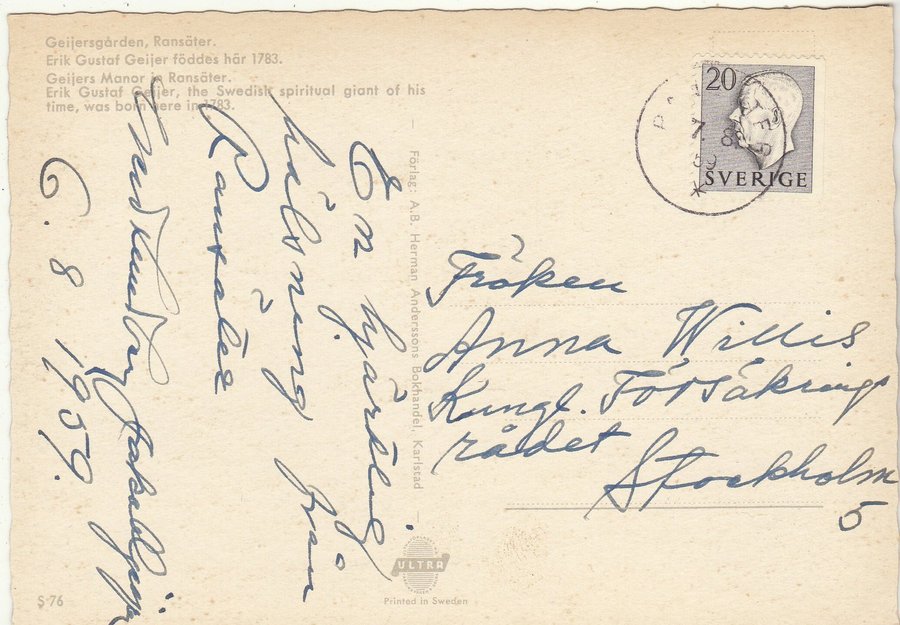 Geijersgården, Ransäter.
Erik Gustaf Geijer föddes här 1783.
Geijers Manor in Ransäter.
Erik Gustaf Geijer, the Swedish spiritual giant of his
time, was born here in 1783.
20
SVERIGE
En hjärtlig
hälsning från
Ransäter
6. 8 1959.
Förlag: A.B. Herman Anderssons Bokhandel, Karlstad
Fröken
Anna Willis
Kungl. Försäkrings
rådet
Stockholm
5
ULTRA
S-76
Printed in Sweden